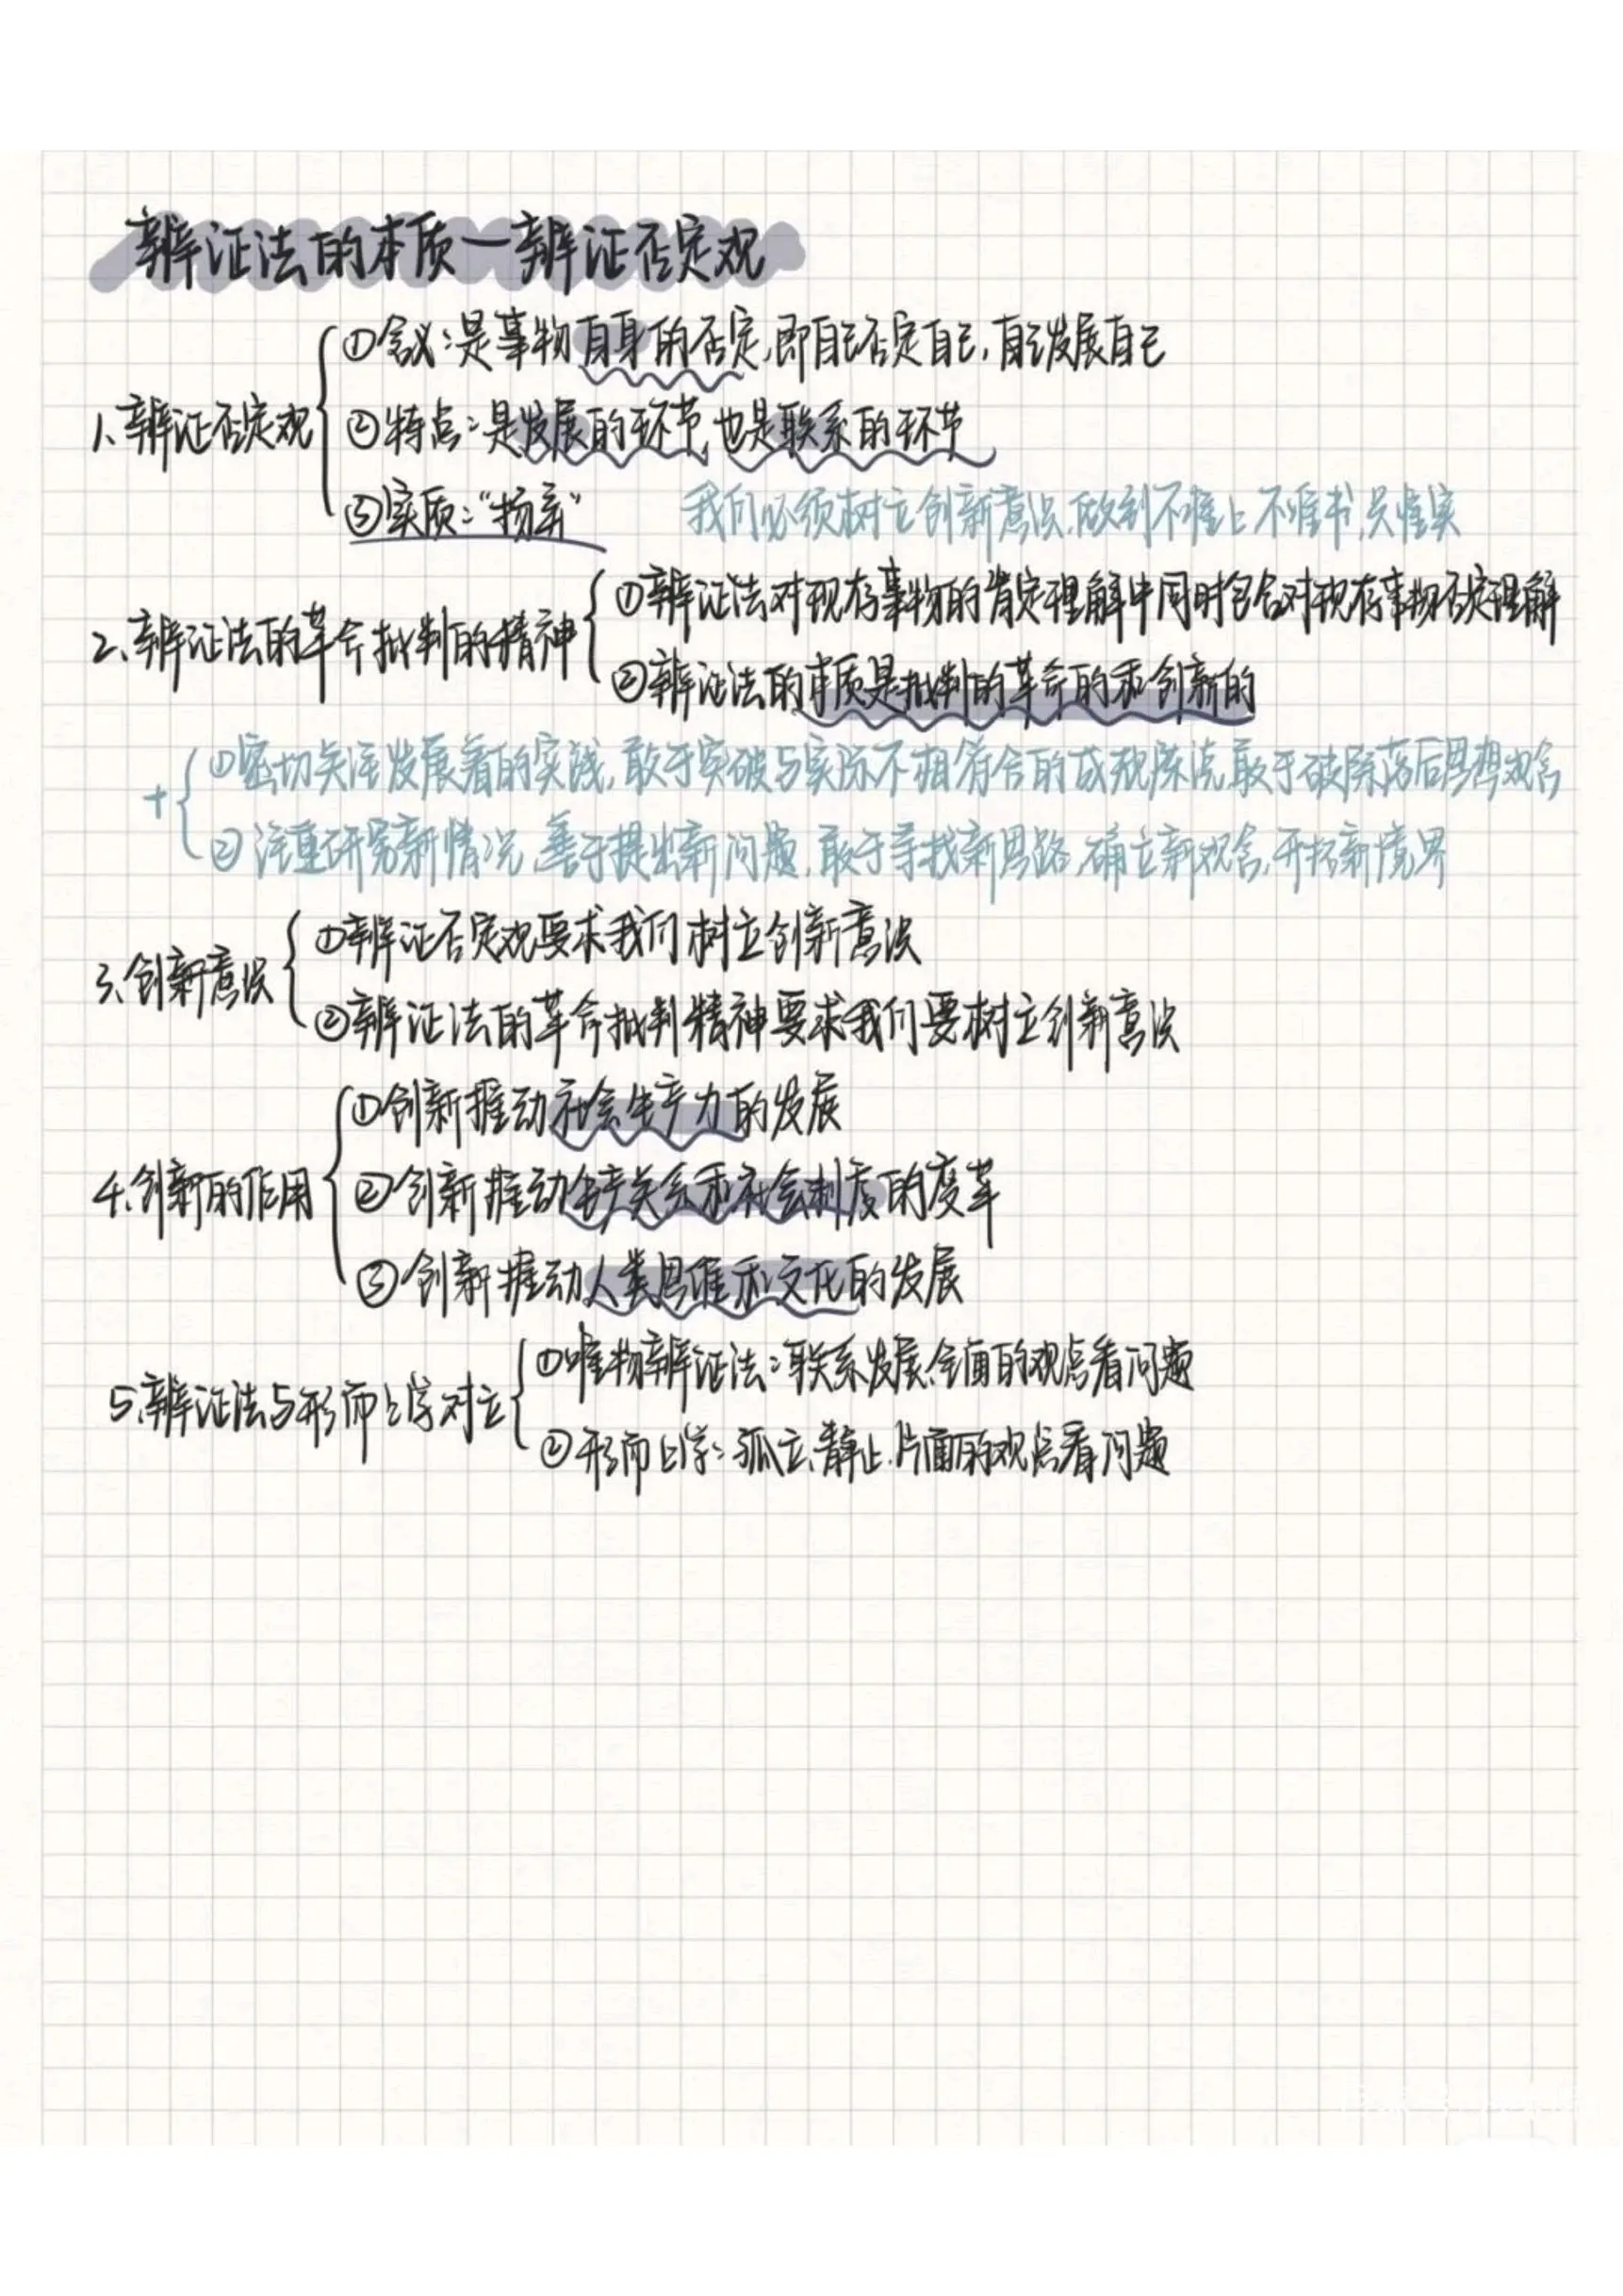 辩证法的本质一辩证否定观
①含义:是事物自身的否定,即自己否定自己,自己发展自己
1、辩证否定观
②特点:是发展的环节,也是联系的环节
③实质:“扬弃”
我们必须树立创新意识,做到不唯上、不唯书,只唯实
①辩证法对现存事物的肯定理解中同时包含对现存事物否定理解
2、辩证法的革命批判的精神
②辩证法的本质是批判的革命的和创新的
+
①密切关注发展着的实践,敢于突破与实际不相符合的成规陈说,敢于破除落后思想观念
②注重研究新情况,善于提出新问题,敢于寻找新思路,确立新观念,开拓新境界
①辩证否定观要求我们树立创新意识
3、创新意识
②辩证法的革命批判精神要求我们要树立创新意识
①创新推动社会生产力的发展
4、创新的作用
②创新推动生产关系和社会制度的变革
③创新推动人类思维和文化的发展
①唯物辩证法:联系发展、全面的观点看问题
5、辩证法与形而上学对立
②形而上学:孤立、静止、片面的观点看问题